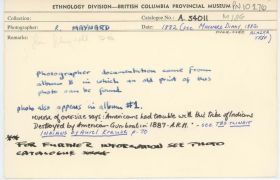 ETHNOLOGY DIVISION—BRITISH COLUMBIA PROVINCIAL MUSEUM PN10270
Collection: Catalogue No.: A 34011
Photographer: R. MAYNARD Date: 1882 (see Maynard Diary, 1882
photographer documentation come from
album B in which an old print of this
photo can be found.
photo also appears in album #1.
reverse of oversize says: Americans had trouble with this tribe of Indians
Destroyed by American Gunboat in 1887. A.R.H. - see THE TLINGIT
INDIANS by Aurel Krause p. 70
** FOR FURTHER INFORMATION SEE PHOTO
CATALOGUE